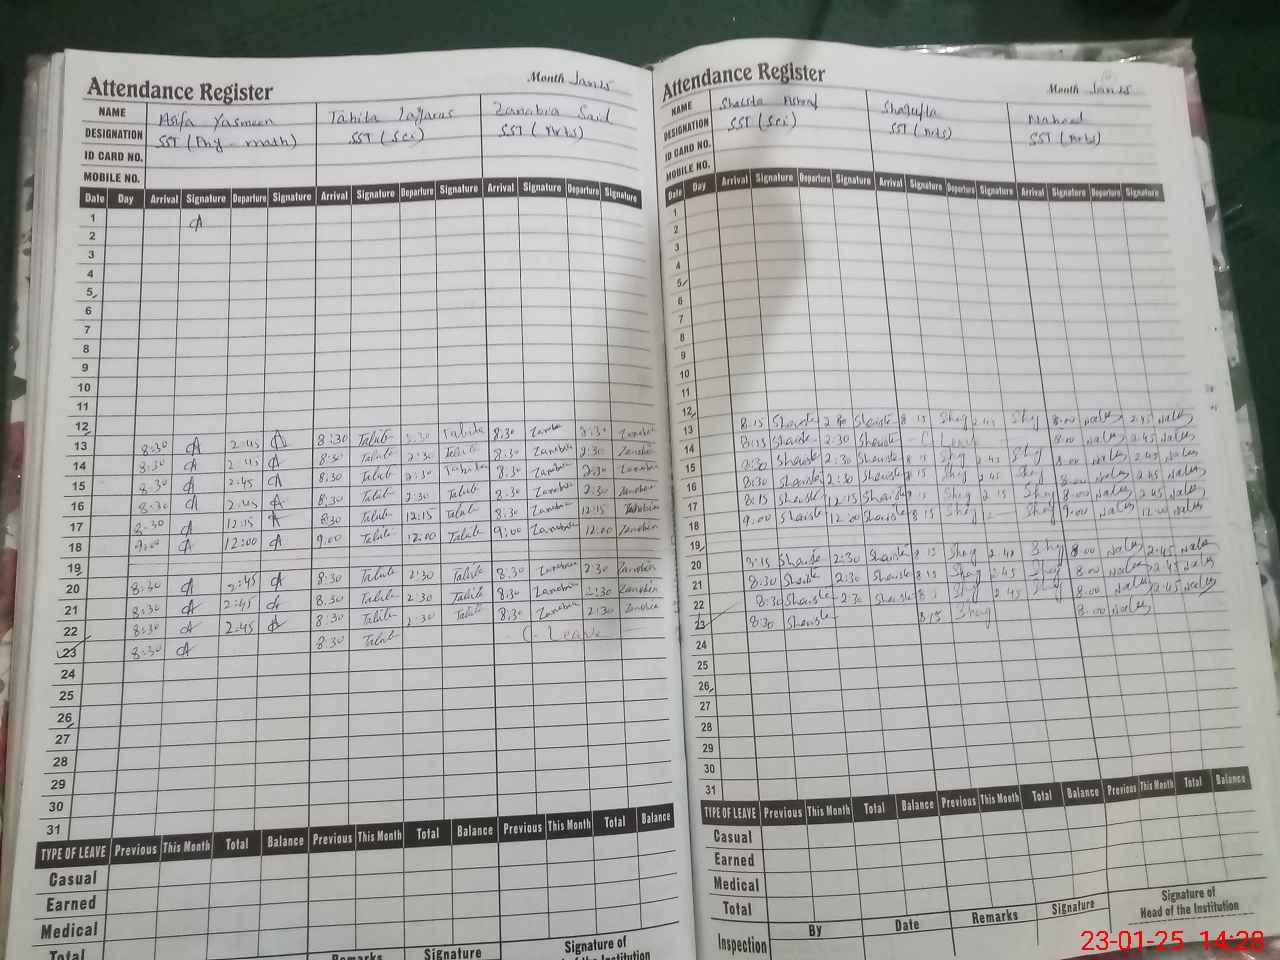 Attendance Register Month Jan 25
NAME Asifa Yasmeen Tabita Lazarus Zanobia Said
DESIGNATION SST (Phy-math) SST (Sci) SST (Arts)
ID CARD NO.
MOBILE NO.
Date Day Arrival Signature Departure Signature Arrival Signature Departure Signature Arrival Signature Departure Signature
1 A
2
3
4
5
6
7
8
9
10
11
12
13 8:30 A 2:45 A 8:30 Tabita 2:30 Tabita 8:30 Zanobia 2:30 Zanobia
14 8:30 A 2:45 A 8:30 Tabita 2:30 Tabita 8:30 Zanobia 2:30 Zanobia
15 8:30 A 2:45 A 8:30 Tabita 2:30 Tabita 8:30 Zanobia 2:30 Zanobia
16 8:30 A 2:45 A 8:30 Tabita 2:30 Tabita 8:30 Zanobia 2:30 Zanobia
17 8:30 A 12:15 A 8:30 Tabita 12:15 Tabita 8:30 Zanobia 12:15 Zanobia
18 9:00 A 12:00 A 9:00 Tabita 12:00 Tabita 9:00 Zanobia 12:00 Zanobia
19
20 8:30 A 2:45 A 8:30 Tabita 2:30 Tabita 8:30 Zanobia 2:30 Zanobia
21 8:30 A 2:45 A 8:30 Tabita 2:30 Tabita 8:30 Zanobia 2:30 Zanobia
22 8:30 A 2:45 A 8:30 Tabita 2:30 Tabita 8:30 Zanobia 2:30 Zanobia
23 8:30 A 8:30 Tabita C-Leave
24
25
26
27
28
29
30
31
TYPE OF LEAVE Previous This Month Total Balance Previous This Month Total Balance Previous This Month Total Balance
Casual
Earned
Medical
Total
Remarks Signature Signature of
of the Institution
Attendance Register Month Jan 25
NAME Shaista Ashraf Shagufta Naheed
DESIGNATION SST (Sci) SST (Arts) SST (Arts)
ID CARD NO.
MOBILE NO.
Date Day Arrival Signature Departure Signature Arrival Signature Departure Signature Arrival Signature Departure Signature
1
2
3
4
5
6
7
8
9
10
11
12
13 8:15 Shaista 2:30 Shaista 8:15 Shag 2:45 Shag 8:00 2:45
14 8:15 Shaista 2:30 Shaista C Leave 8:00 2:45
15 8:30 Shaista 2:30 Shaista 8:15 Shag 2:45 Shag 8:00 2:45
16 8:30 Shaista 2:30 Shaista 8:15 Shag 2:45 Shag 8:00 2:45
17 8:15 Shaista 12:15 Shaista Shag Shag 8:00
18 9:00 Shaista 12:00 Shaista 8:15 Shag 9:00 12:00
19
20 8:15 Shaista 2:30 Shaista 8:15 Shag 2:45 Shag 8:00 2:45
21 8:30 Shaista 2:30 Shaista 8:15 Shag 2:45 Shag 8:00 2:45
22 8:30 Shaista 2:30 Shaista 8:15 Shag 2:45 Shag 8:00 2:45
23 8:30 Shaista 8:15 Shag 8:00
24
25
26
27
28
29
30
31
TYPE OF LEAVE Previous This Month Total Balance Previous This Month Total Balance Previous This Month Total Balance
Casual
Earned
Medical
Total
Inspection By Date Remarks Signature Signature of
Head of the Institution
23-01-25 14:28